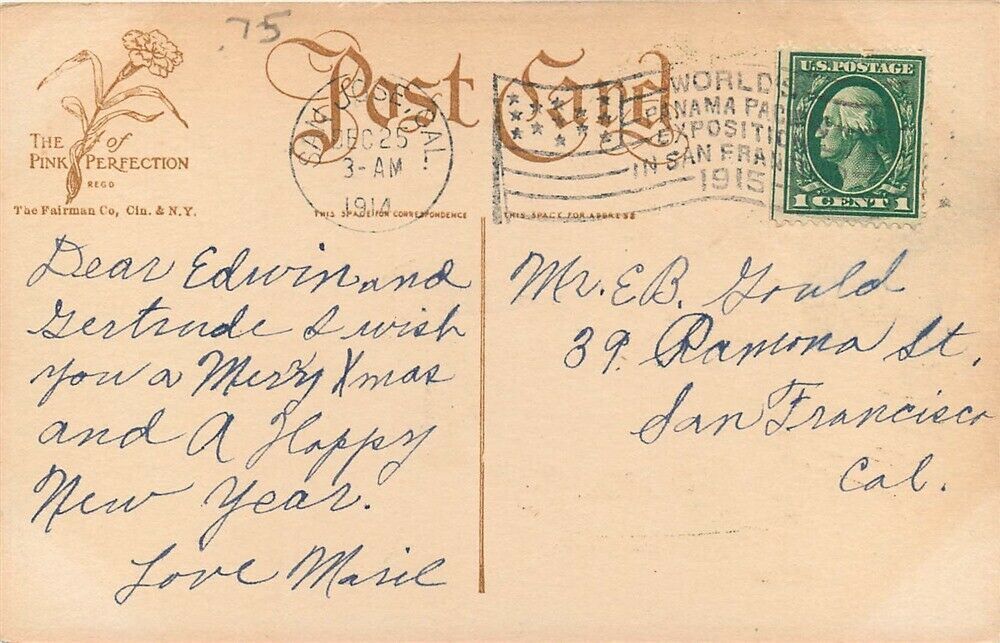 .75
THE of
PINK PERFECTION
REGD
The Fairman Co, Cin. & N.Y.
Post Card
SAN JOSE, CAL.
DEC 25
3-AM
1914
WORLD'S
PANAMA PAC
EXPOSITIO
IN SAN FRAN
1915
U.S. POSTAGE
1 CENT 1
THIS SPACE FOR CORRESPONDENCE
THIS SPACE FOR ADDRESS
Dear Edwin and
Gertrude I wish
you a Merry Xmas
and A Happy
New Year.
Love Marie
Mr. E.B. Gould
39 Ramona St.
San Francisco
Cal.